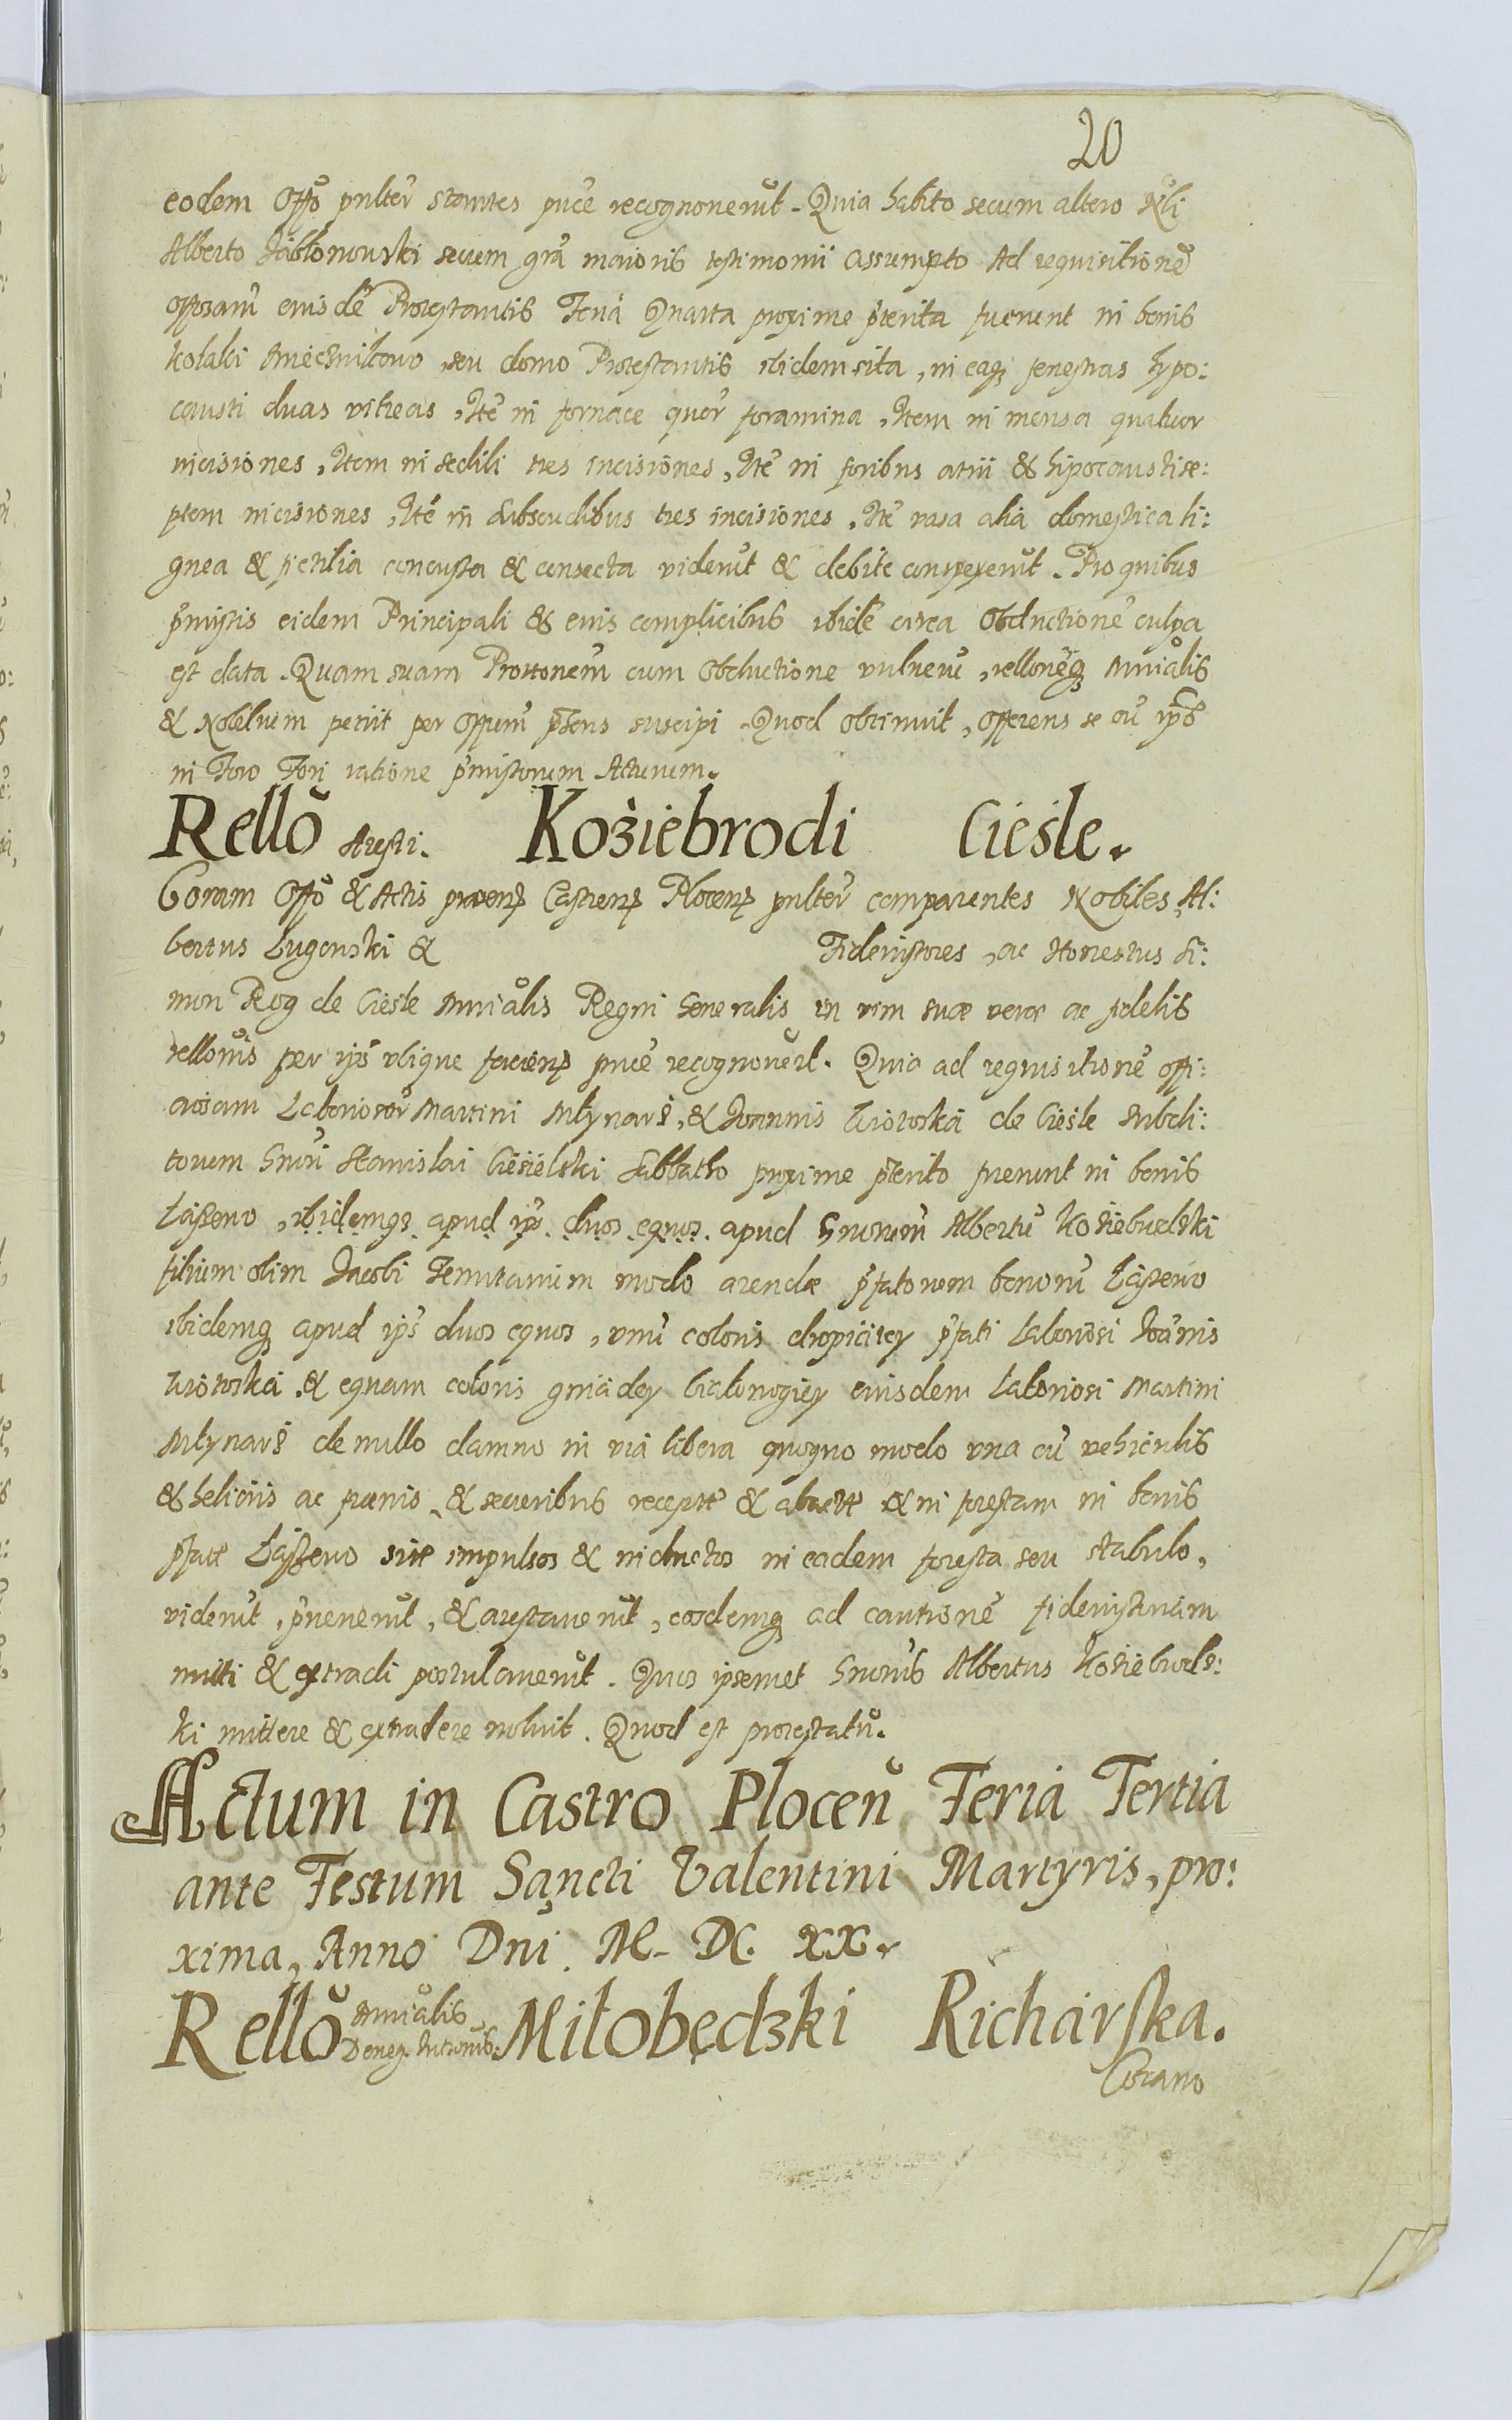 20
eodem Offõ pnlter̃ stantes pnce recognouerũt. Quia habito secum altero Nłi
Alberto Jabłonowski secum grã maioris testimonii assumpto Ad requisitionẽ
Offosam̃ eiusdẽ Protestantis Feria Quarta proxime pterita fuerunt in bonis
Kolaki Kmiecnikowo, seu domo Protestantis ibidem sita, in eaq3 fenestras hypo:
causti duas vitreas, Itẽ in fornace quor̃ foramina, Item in mensa quatuor
incisiones, Item in sedili tres incisiones, Itẽ in foribus atrii & hipocausti se:
ptem incisiones, Itẽ in subscudibus tres incisiones, Itẽ vasa alia domestica li:
gnea & fictilia concussa & consecta viderũt & debite conspexerũt. Pro quibus
pmissis eidem Principali & eius complicibus ibidẽ circa Obductionẽ culpa
est data. Quam suam Prottonem̃ cum Obductione vulnerũ, rellonẽq3 Mniãlis
& Nobilium petiit per Offium̃ pñs suscipi. Quod obtinuit, offerens se cũ ipõ
in Foro Fori ratione pmissorum Acturum.
Rellõ Aresti. Koźiebrodi Cieśle.
Coram Offõ & Actis pñtibus Castren3 Plocen3 pnlter̃ comparentes Nobiles Al:
bertus Lugowski & Fidedignitores, ac Honestus Si:
mon Rog de Cieśle Mniãlis Regni Generalis in vim suæ veræ ac fidelis
rellonis per ips̃ vbique facien3 pnce recognouerũt. Quia ad requisitionẽ offi:
ciosam Laboriosor̃ Martini Młynarz, & Joannis Wiotoska de Cieśle subdi:
torum Gnõri Stanislai Cieśielski Sabbatho proxime pterito fuerunt in bonis
Łaszewo, ibidemq3 apud ips̃ duos equos apud Gnorum̃ Albertũ Koźiebrodski
filium olim Jacobi Tenutarium modo arendæ pfatorum bonorũ Łaszewo
ibidemq3 apud ips̃ duos equos, vnũ coloris chropiatey pfati Laboriosi Joãnis
Wiotoska & equam coloris gniadey białonogiey eiusdem Laboriosi Martini
Młynarz de nullo damno in via libera quoquo modo vna cũ vehiculis
& heliciis ac frænis, & securibus recept & abact & in forestam in bonis
pfat Łaszewo sitæ impulsos & inductos in eadem foresta seu stabulo,
viderũt, inuenerũt, & arestauerũt, eosdemq3 ad cautionẽ fideiussoriam
mitti & extradi postulauerũt. Quos ipsemet Gnorus Albertus Koźiebrods:
ki mittere & extradere noluit. Quod est protestatũ.
Actum in Castro Plocen̄ Feria Tertia
ante Festum Sancti Valentini Martyris, pro:
xima, Anno Dni. M. DC. XX.
Rellõ Mniãlis Deneg. Intronis. Miłobędzki Richarska.
Corano